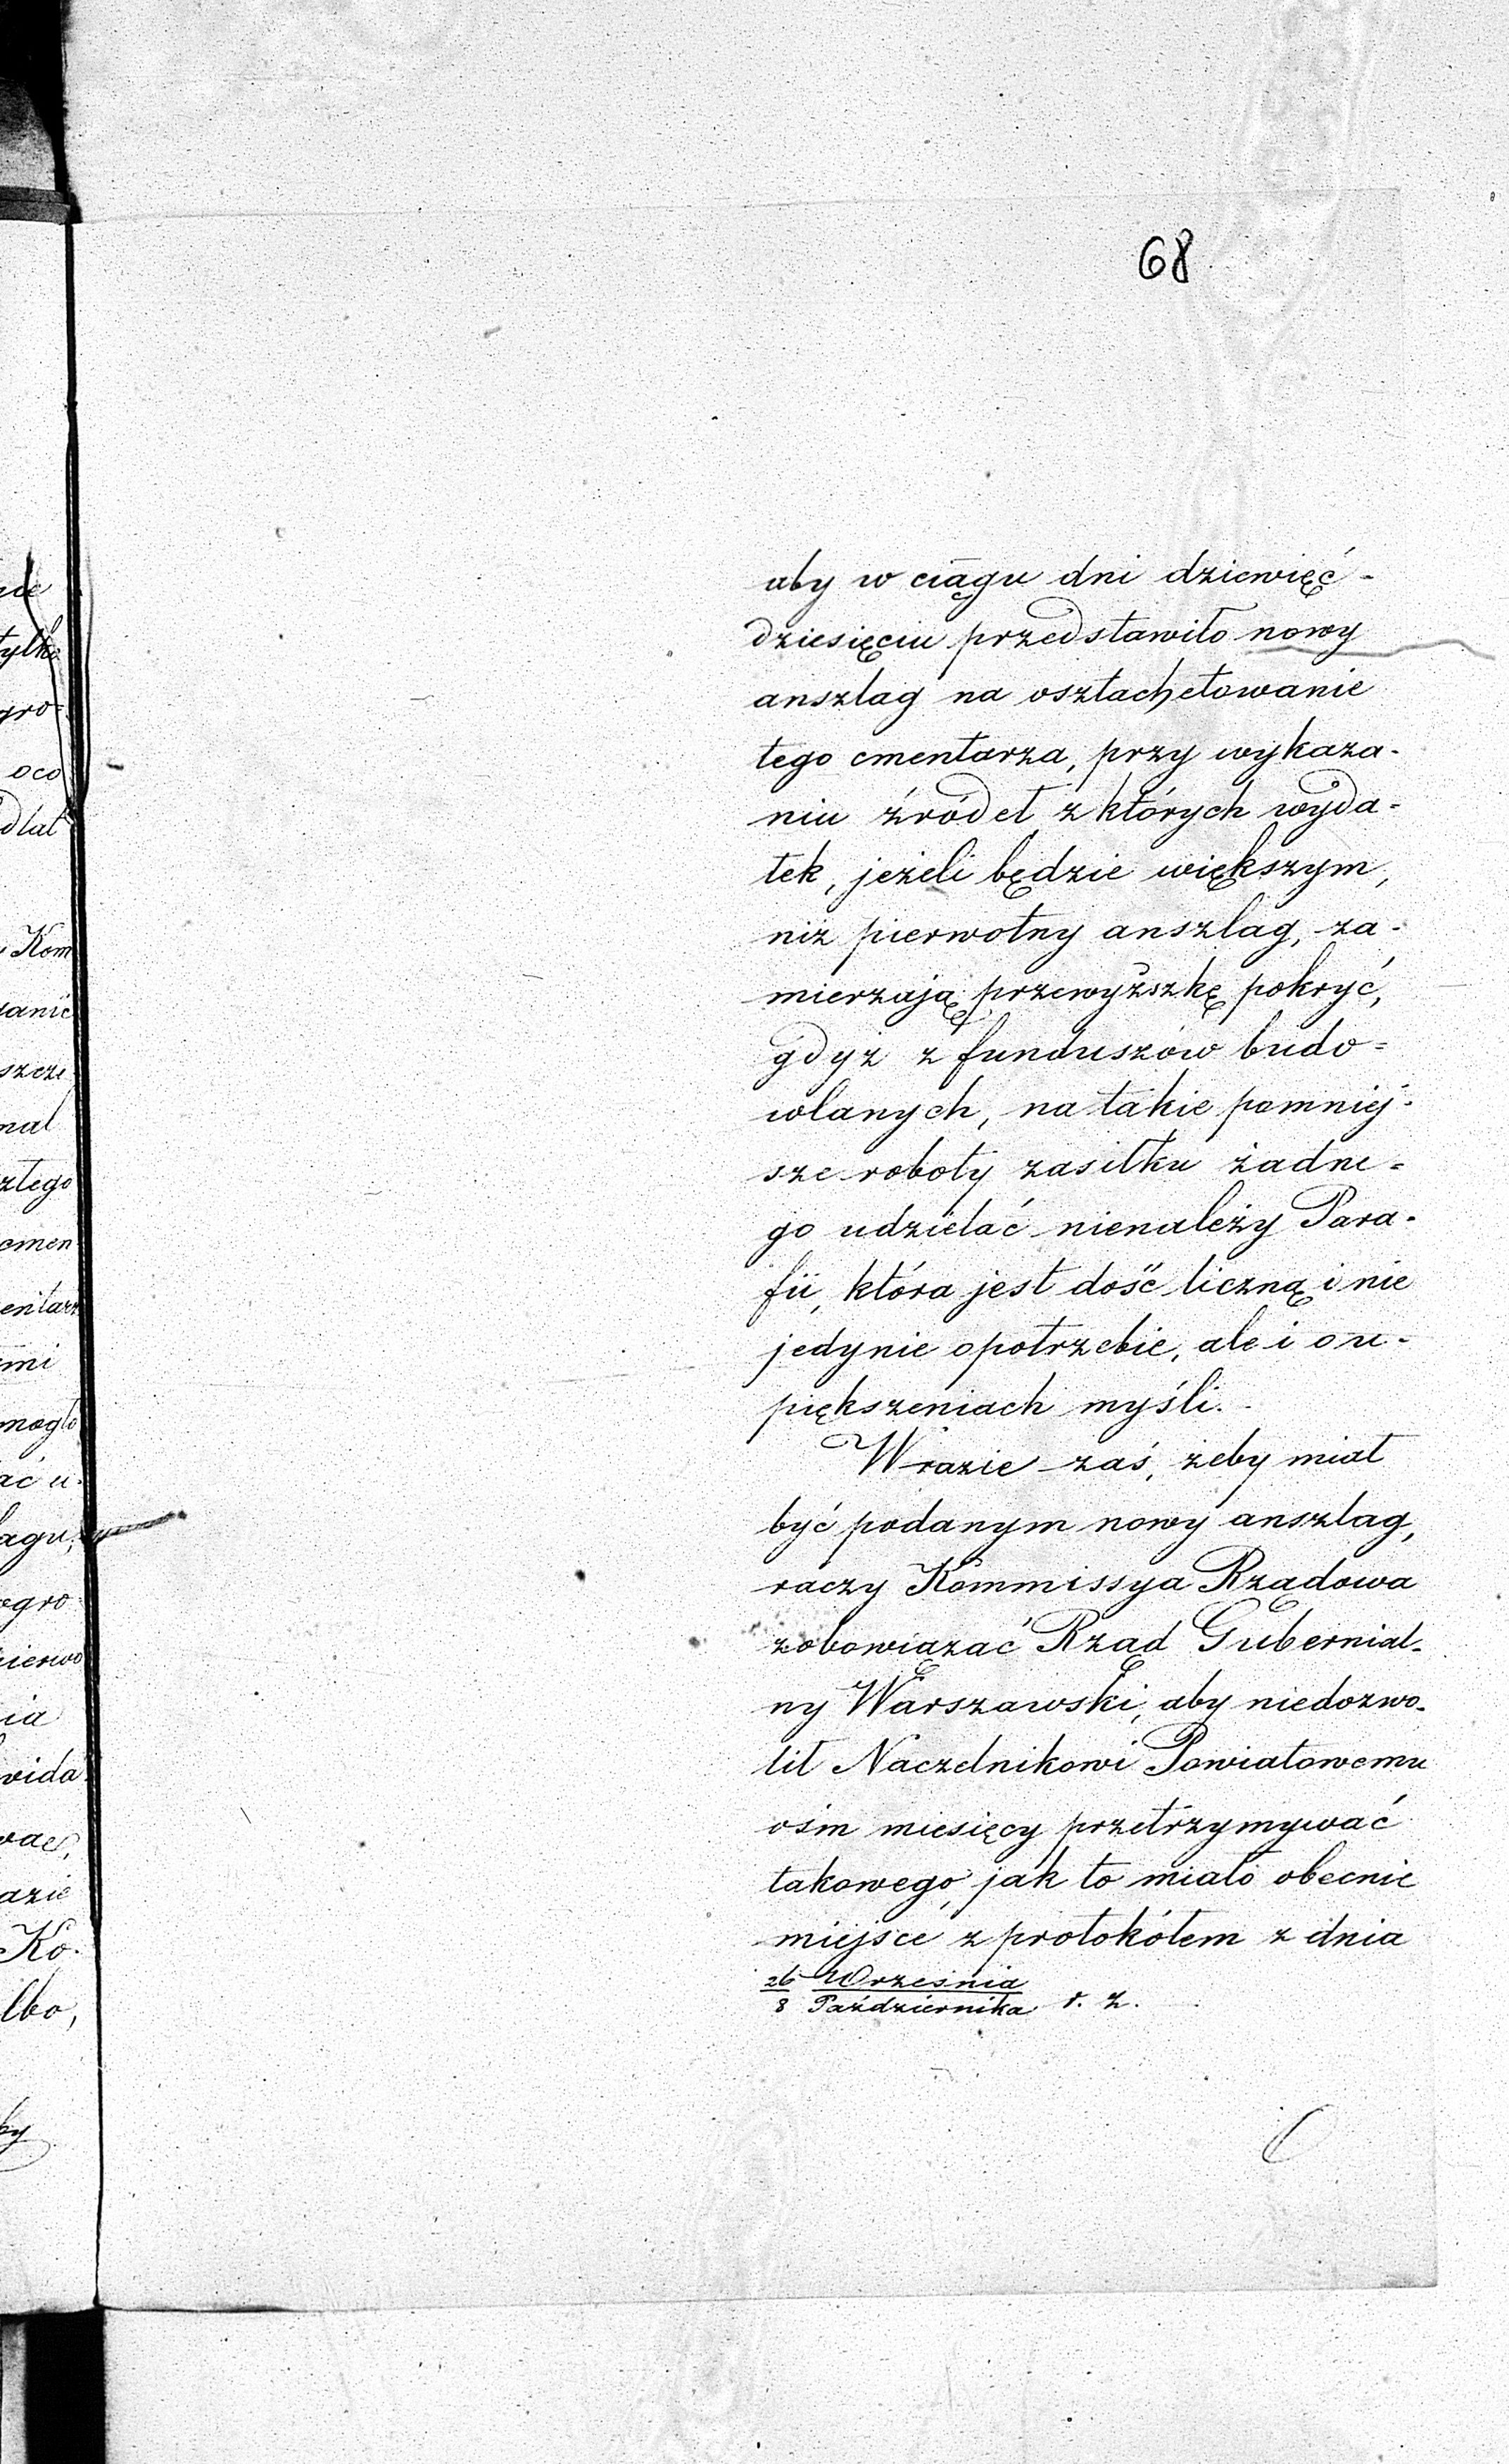 68
aby w ciągu dni dziewięć-
dziesięciu przedstawiło nowy
anszlag na osztachetowanie
tego cmentarza, przy wykaza-
niu źródeł z których wyda-
tek, jeżeli będzie większym,
niż pierwotny anszlag, za-
mierzają przewyższkę pokryć,
gdyż z funduszów budo=
wlanych, na takie pomniej-
sze roboty zasiłku żadne=
go udzielać nienależy Para-
fii, która jest dość liczną i nie
jedynie o potrzebie, ale i o u-
piększeniach myśli.
W razie zaś, żeby miał
być podanym nowy anszlag,
raczy Kommissya Rządowa
zobowiązać Rząd Gubernial-
ny Warszawski, aby niedozwo-
lił Naczelnikowi Powiatowemu
ośm miesięcy przetrzymywać
takowego, jak to miało obecnie
miejsce z protokółem z dnia
26 Września
8 Października r. z.
tylko
gro=
oco
dlat
Kom
szcze
nal
złego
cmen
entarz
mi
mogło
ać u-
ogro
pierwo
ia
wida
azie
Ko-
lbo,
by